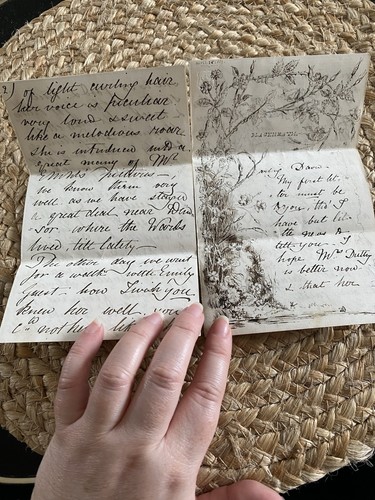 2) of light curling hair
her voice is peculiar
very loud & sweet
like a melodious
She is introduced into a
great many of Mrs
Wards pictures —
we know them very
well as we have stayed
a great deal near Win
sor where the Wards
lived, till lately —
The other day we went
for a week with Emily
Guest: how I wish you
knew her well, you
not
BLACKHEATH.
My first let
ter must be
you, tho' I
have but lit
tle news to
tell you. I
hope Mrs
is better now
& that her